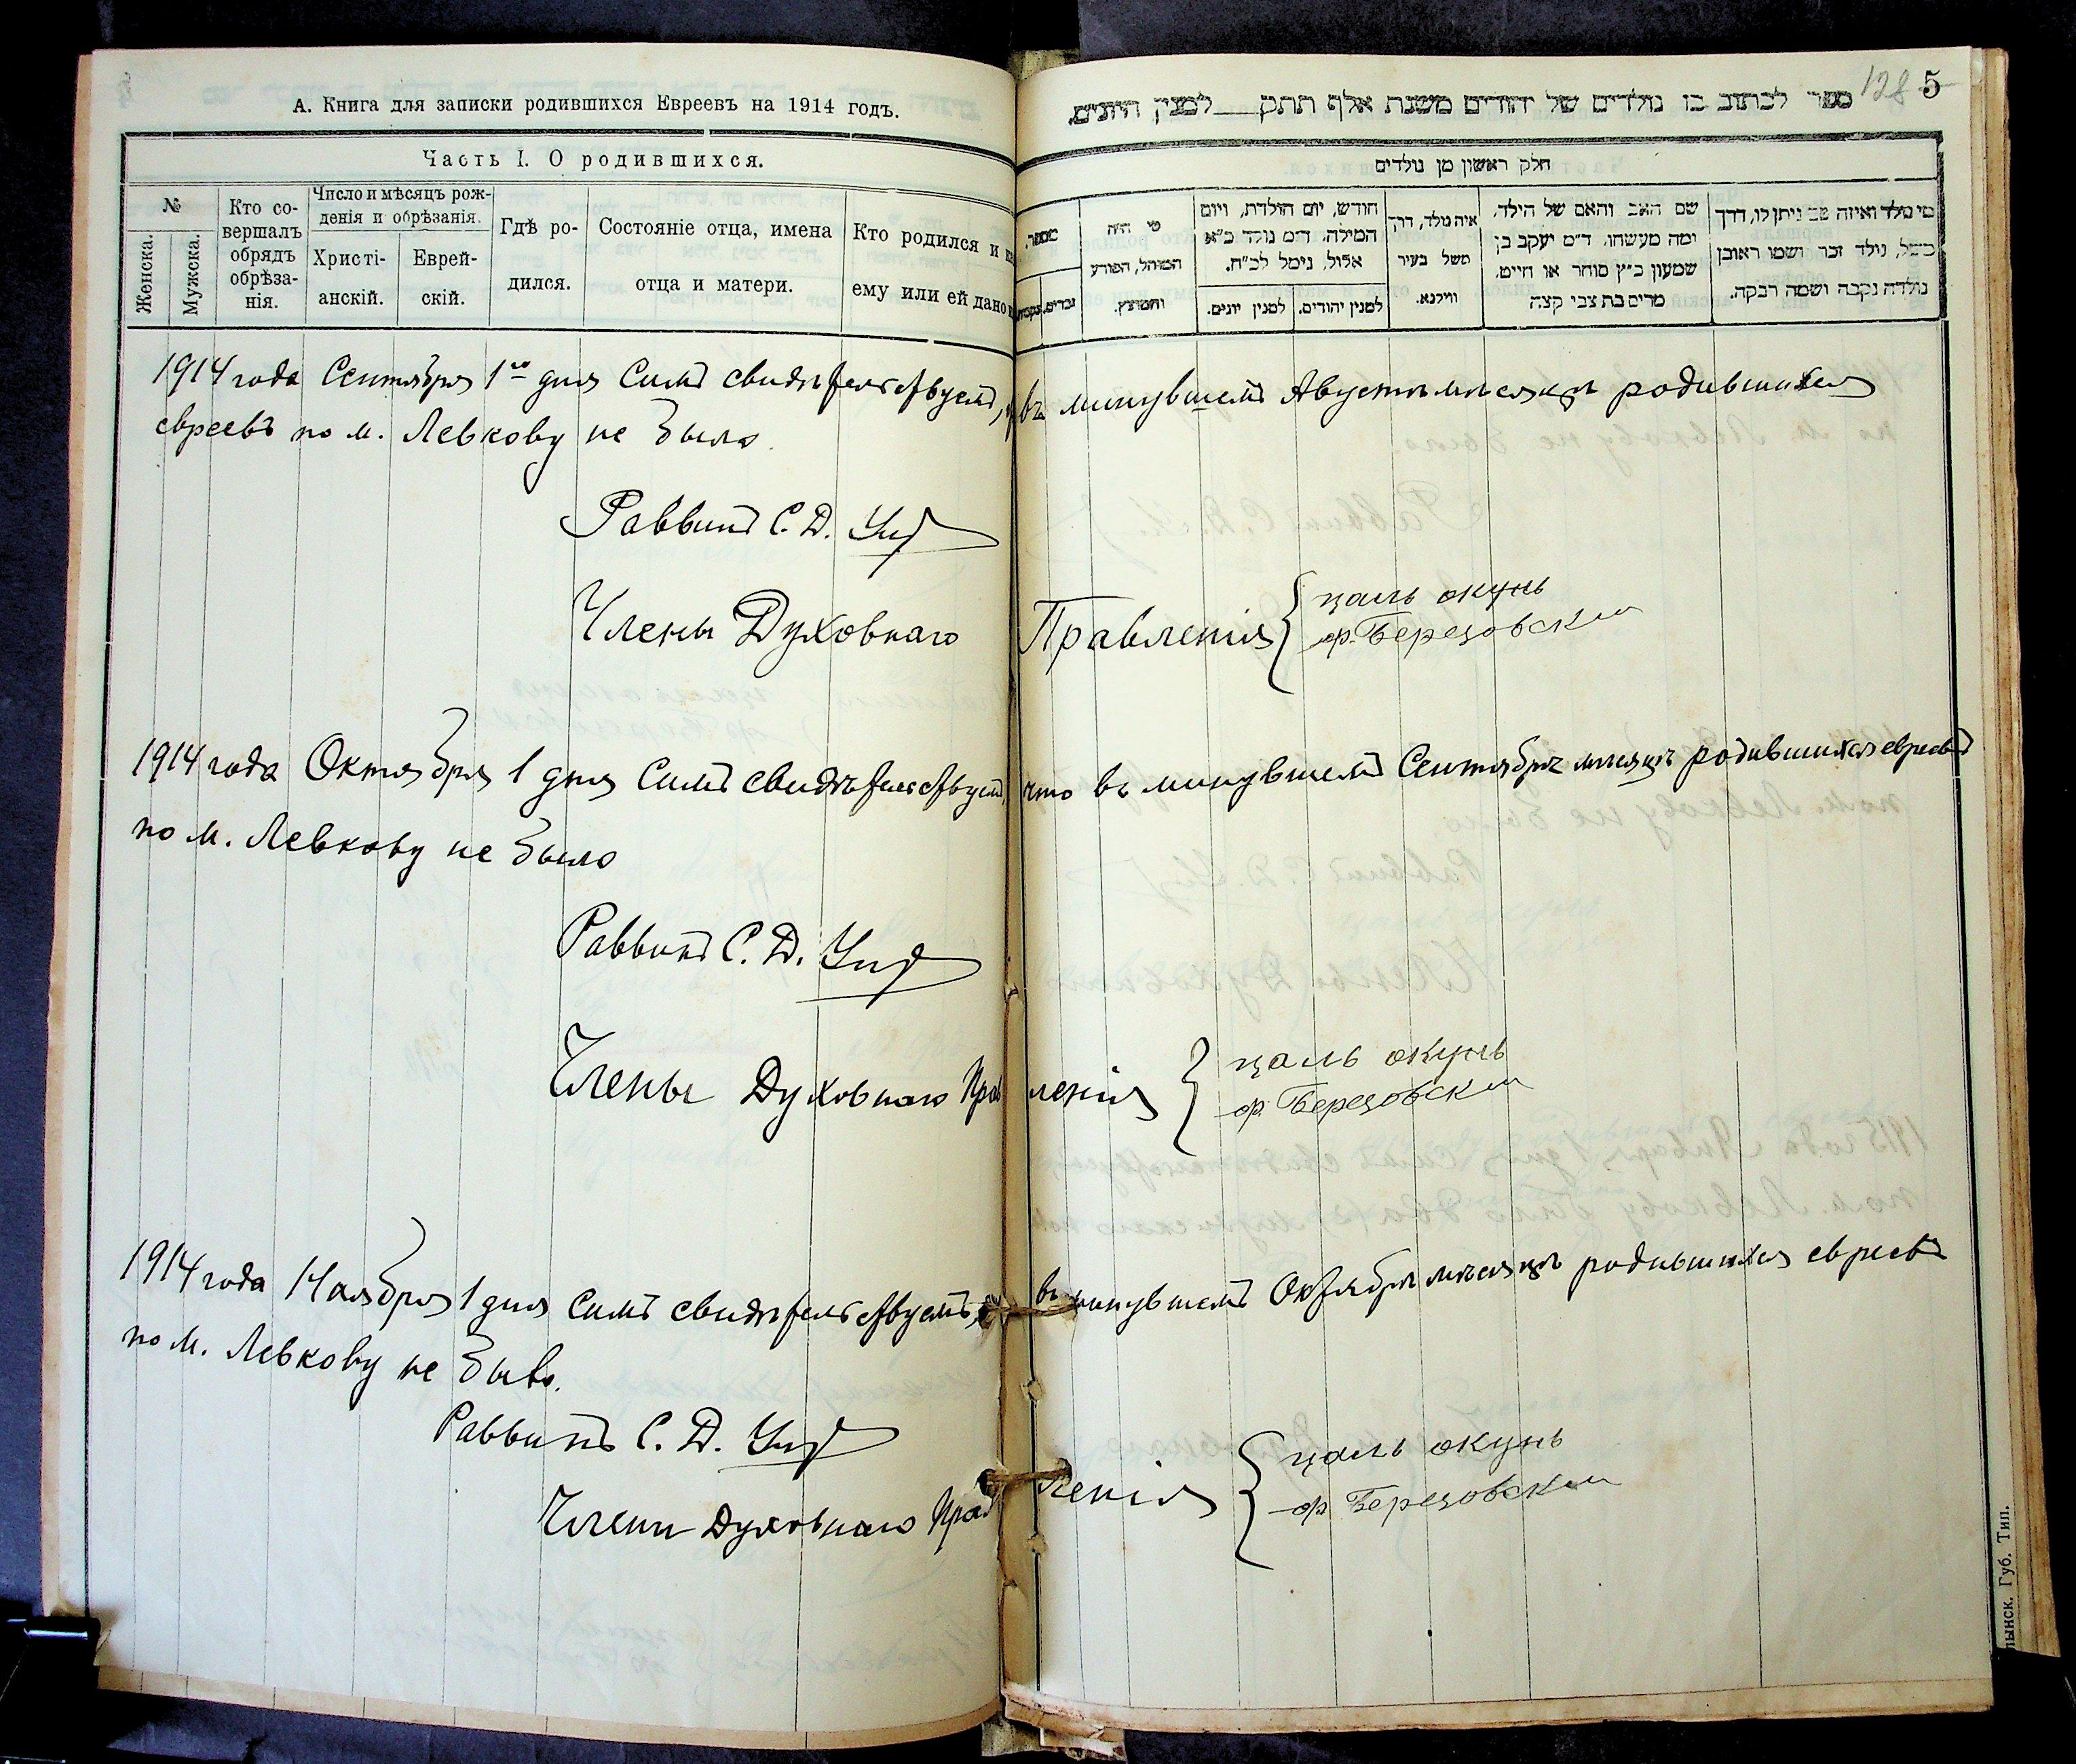 А. Книга для записки родившихся Евреевъ на 1914 годъ.
Часть I. О родившихся.
№
Женска.
Мужска.
Кто со-
вершалъ
обрядъ
обрѣза-
нія.
Число и мѣсяцъ рож-
денія и обрѣзанія.
Христі-
анскій.
Еврей-
скій.
Гдѣ ро-
дился.
Состояніе отца, имена
отца и матери.
Кто родился и
ему или ей дано
128 5
ספר לכתוב בו נולדים של יהודים משנת אלף תתק___למנין היונים.
חלק ראשון מן נולדים
מספר.
זכרים.
מי היה
המוהל, הפורע
והמוצץ.
חודש, יום הולדת, ויום
המילה. ד״מ נולד כ״א
אלול, נימל לכ״ח.
למנין יהודים.
למנין יונים.
איה נולד, דרך
משל בעיר
ווילנא.
שם האב והאם של הילד,
ומה מעשהו. ד״מ יעקב בן
שמעון כ״ץ סוחר או חייט,
מרים בת צבי קצה
מי נולד ואיזה שם ניתן לו, דרך
משל, נולד זכר ושמו ראובן
נולדה נקבה ושמה רבקה.
1914 года Сентября 1го дня Симъ свидѣтельствуемъ, въ минувшемъ Августѣ мѣсяцѣ родившихся
евреевъ по м. Левкову не было.
Раввинъ С. Д.
Члены Духовнаго Правленія { цаль окунь
ор. Березовский
1914 года Октября 1 дня Симъ свидѣтельствуемъ, что въ минувшемъ Сентябрѣ мѣсяцѣ родившихся евреевъ
по м. Левкову не было
Раввинъ С. Д.
Члены Духовнаго Правленія { цаль окунь
ор. Березовский
1914 года Ноября 1 дня Симъ свидѣтельствуемъ, въ минувшемъ Октябрѣ мѣсяцѣ родившихся евреевъ
по м. Левкову не было.
Раввинъ С. Д.
Члены Духовнаго Правленія { цаль окунь
ор. Березовский
лынск. Губ. Тип.